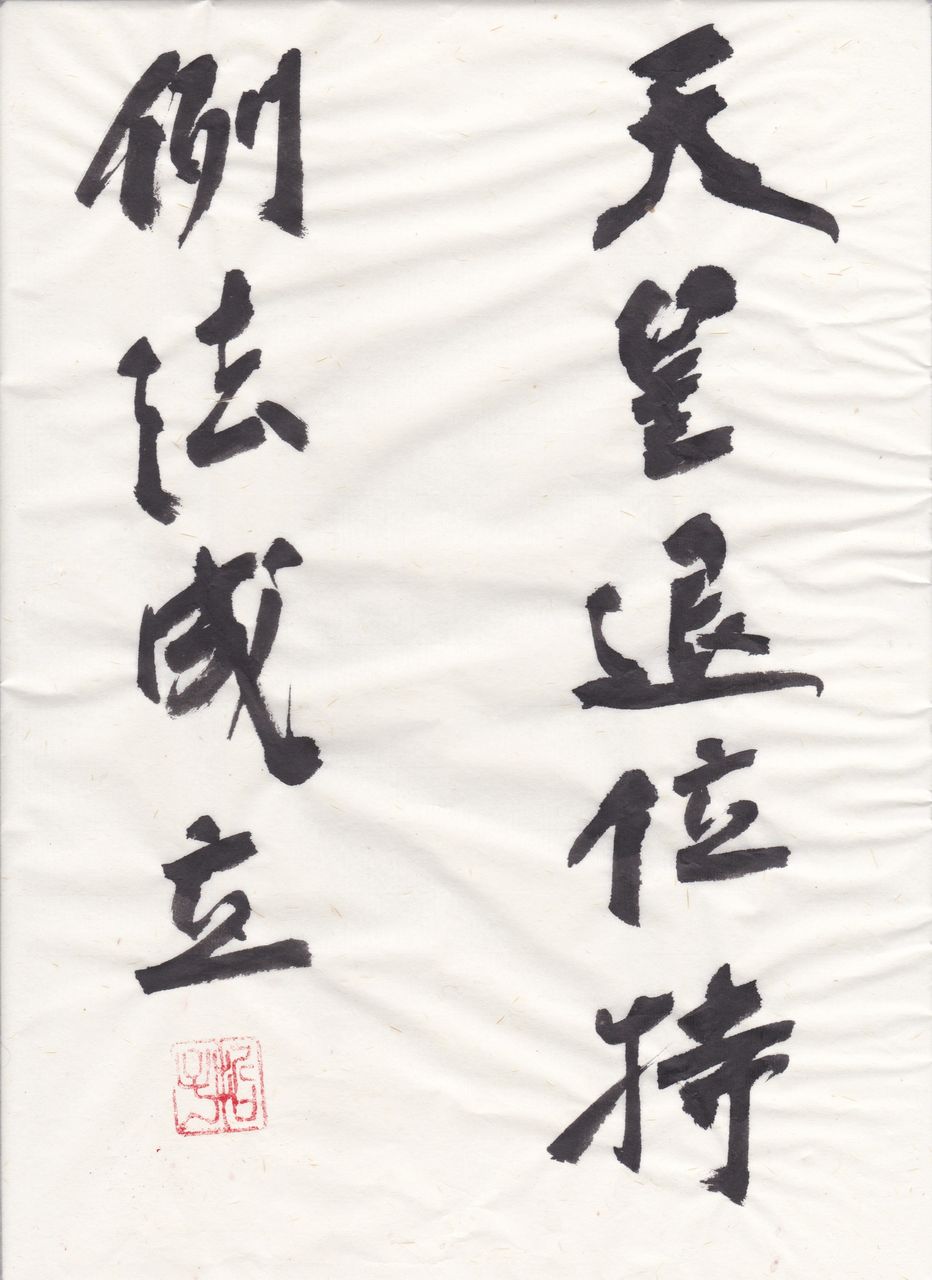 天皇退位特
例法成立